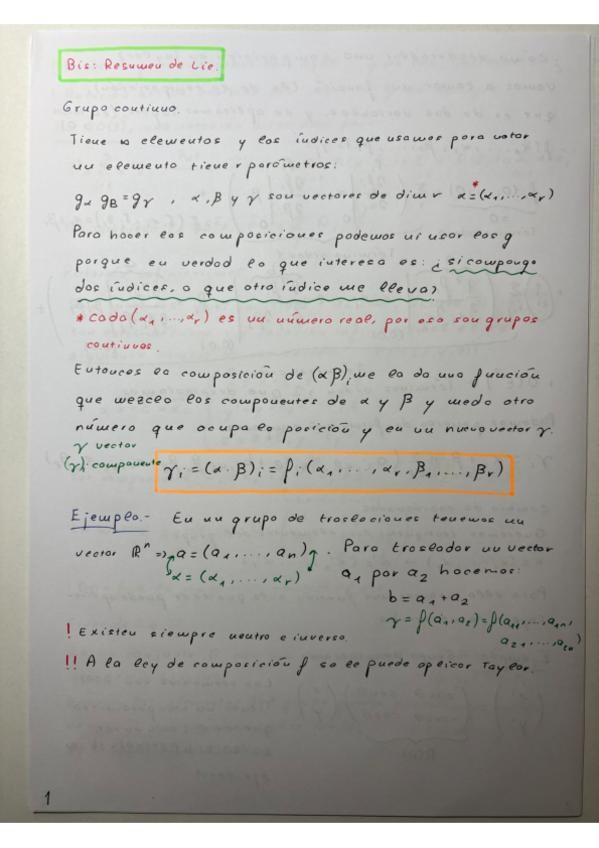 Bis: Resumen de Lie.
Grupo continuo.
Tiene ∞ elementos y los índices que usamos para notar
un elemento tiene r parámetros:
gα gβ = gγ , α, β y γ son vectores de dim r α =* (α1, ..., αr)
Para hacer las composiciones podemos ni usar las g
porque en verdad lo que interesa es: ¿si compongo
dos índices, a que otro índice me lleva?
* cada (α1, ..., αr) es un número real, por eso son grupos
continuos.
Entonces la composición de (α β)i me la da una función
que mezcla los componentes de α y β y me da otro
número que ocupa la posición γ en un nuevo vector γ.
γ vector
(γ)i componente γi = (α · β)i = fi (α1, ..., αr, β1, ..., βr)
Ejemplo.- En un grupo de traslaciones tenemos un
vector ℝⁿ => a = (a1, ..., an) . Para trasladar un vector
α = (α1, ..., αr) a1 por a2 hacemos:
b = a1 + a2
γ = f(a1, a2) = f(a11, ..., a1n,
a21, ..., a2n)
! Existen siempre neutro e inverso.
!! A la ley de composición f se le puede aplicar Taylor.
1